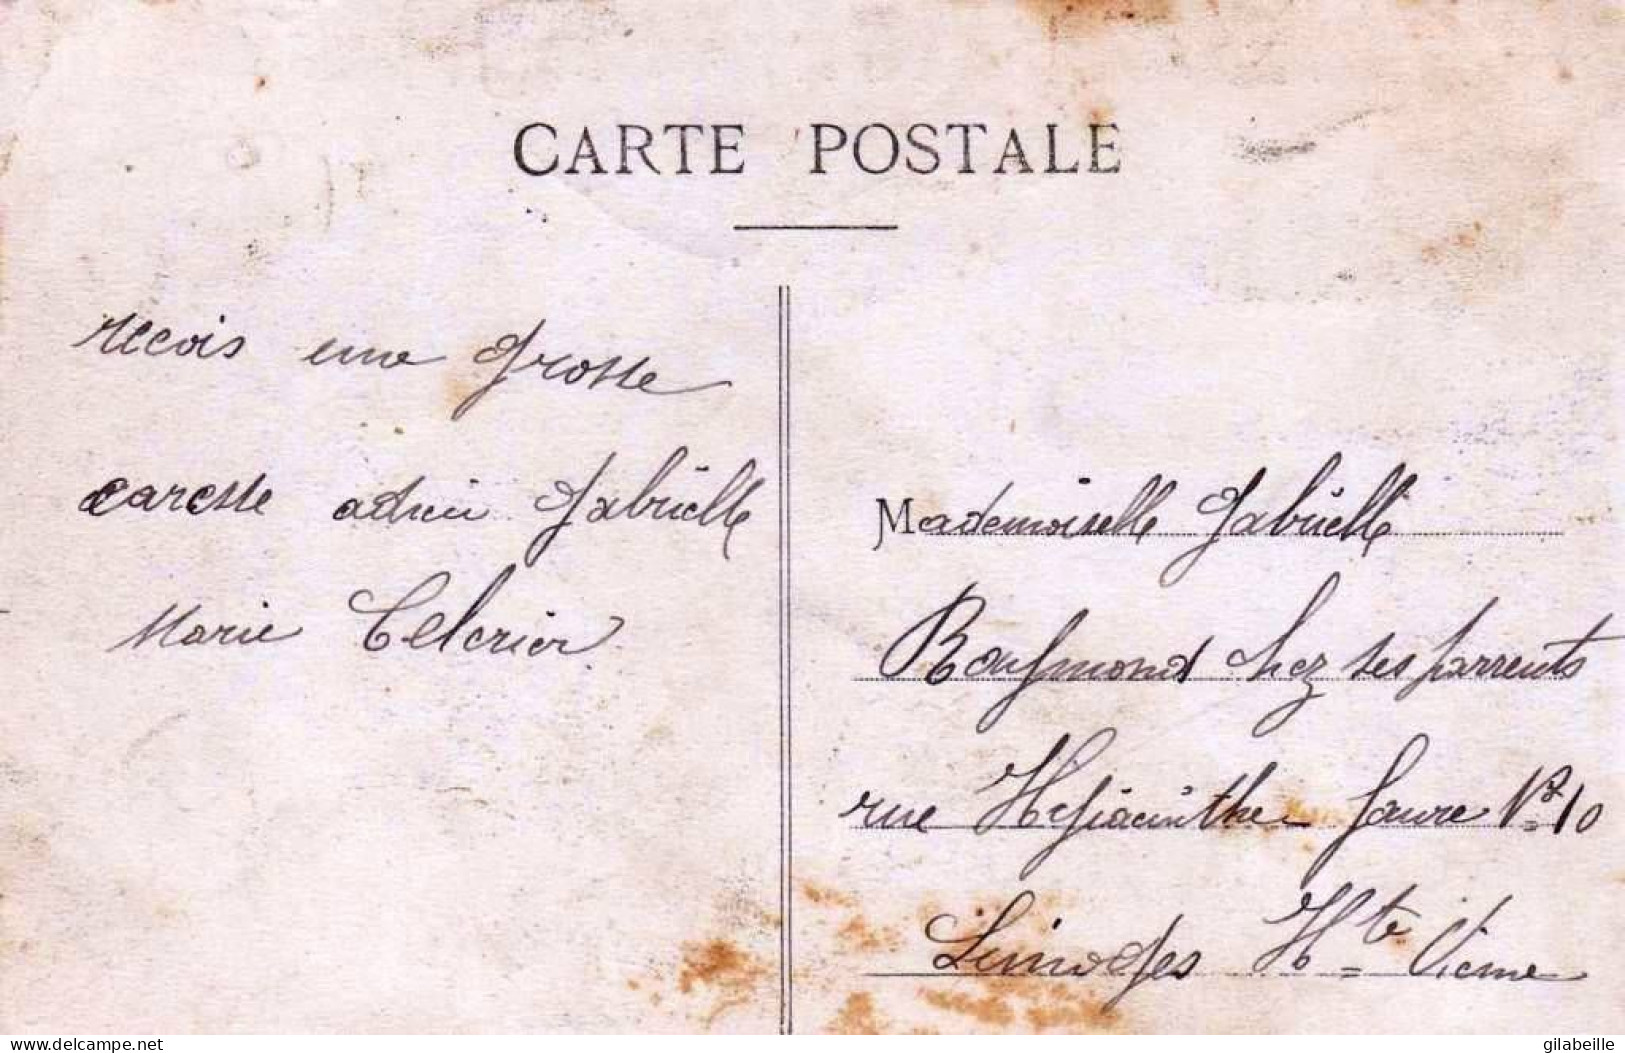 CARTE POSTALE
recois une grosse
caresse adieu Gabrielle
Marie
Mademoiselle Gabrielle
Raymond chez ses parrents
rue Hyjacinthe Faure Nº 10
Limoges Hte Vienne
delcampe.net
gilabeille